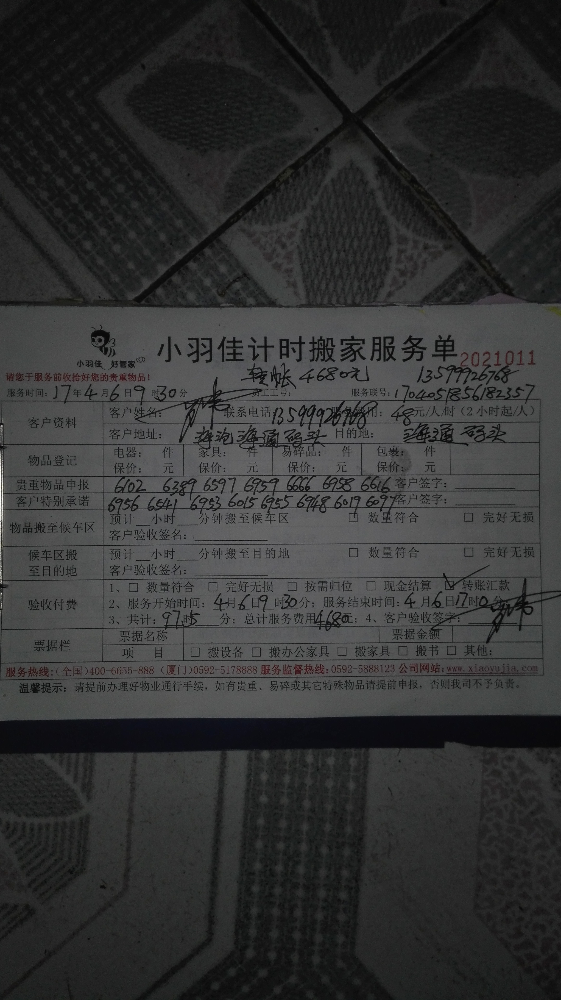 小羽佳 好管家
小羽佳计时搬家服务单 2021011
转帐 4680元 13599926768
请您于服务前收拾好您的贵重物品!
服务时间: 17年4月6日9时30分 服务联号: 1704051856182357
客户资料
客户姓名: 联系电话: 48元/人/时 (2小时起/人)
客户地址: 海沧海通码头 目的地: 海通码头
物品登记
电器: 件 家具: 件 易碎品: 件 包装: 件
保价: 元 保价: 元 保价: 元 保价: 元
贵重物品申报 6102 6389 6597 6959 6666 6958 6616 客户签字:
客户特别承诺 6956 6541 6953 6015 6955 6948 6019 6097 客户签字:
物品搬至候车区
预计__小时__分钟搬至候车区 □ 数量符合 □ 完好无损
客户验收签名:
候车区搬至目的地
预计__小时__分钟搬至目的地 □ 数量符合 □ 完好无损
客户验收签名:
验收付费
1、□ 数量符合 □ 完好无损 □ 按需归位 □ 现金结算 ☑ 转账汇款
2、服务开始时间: 4月6日9时30分; 服务结束时间: 4月6日17时0
3、共计: 97.5 分; 总计服务费用4680元; 4、客户验收签字:
票据栏
票据名称 票据金额
项 目 □ 搬设备 □ 搬办公家具 □ 搬家具 □ 搬书 □ 其他:
服务热线:(全国)400-6655-888 (厦门)0592-5178888 服务监督热线:0592-5888123 公司网站:www.xiaoyujia.com
温馨提示: 请提前办理好物业通行手续, 如有贵重、易碎或其它特殊物品请提前申报, 否则我司不予负责。